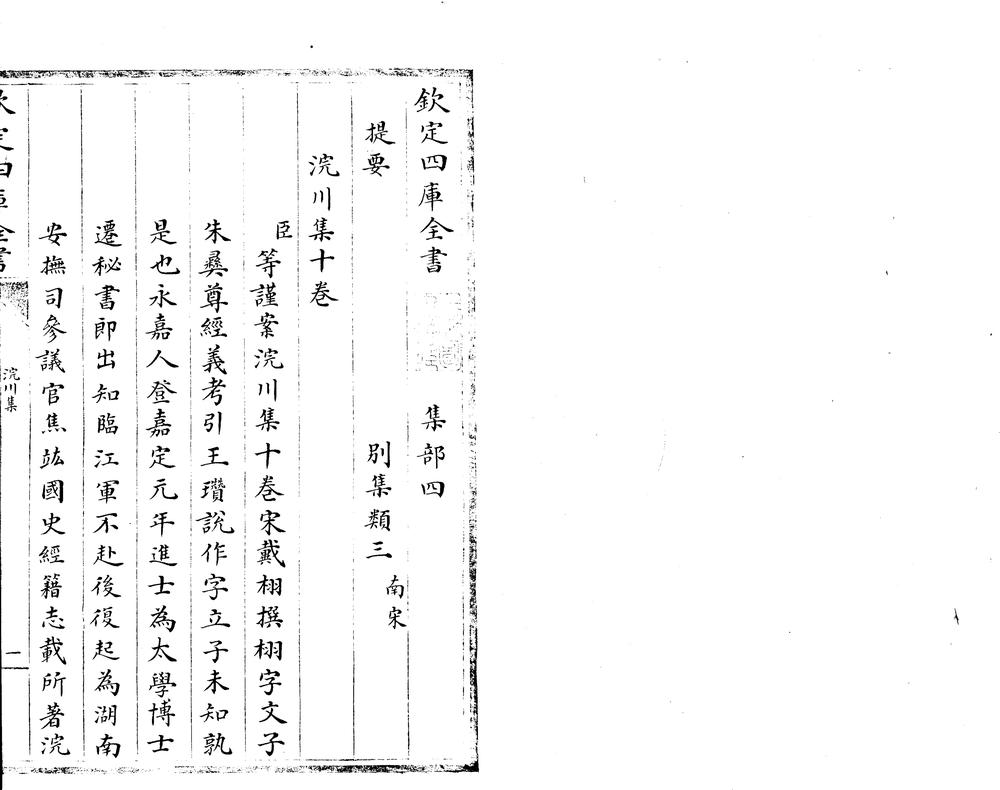 欽定四庫全書 集部四
提要 別集類三南宋
浣川集十卷
臣等謹案浣川集十卷宋戴栩撰栩字文子
朱彞尊經義考引王瓚說作字立子未知孰
是也永嘉人登嘉定元年進士為太學博士
遷秘書郎出知臨江軍不赴後復起為湖南
安撫司參議官焦竑國史經籍志載所著浣
欽定四庫全書
浣川集
一